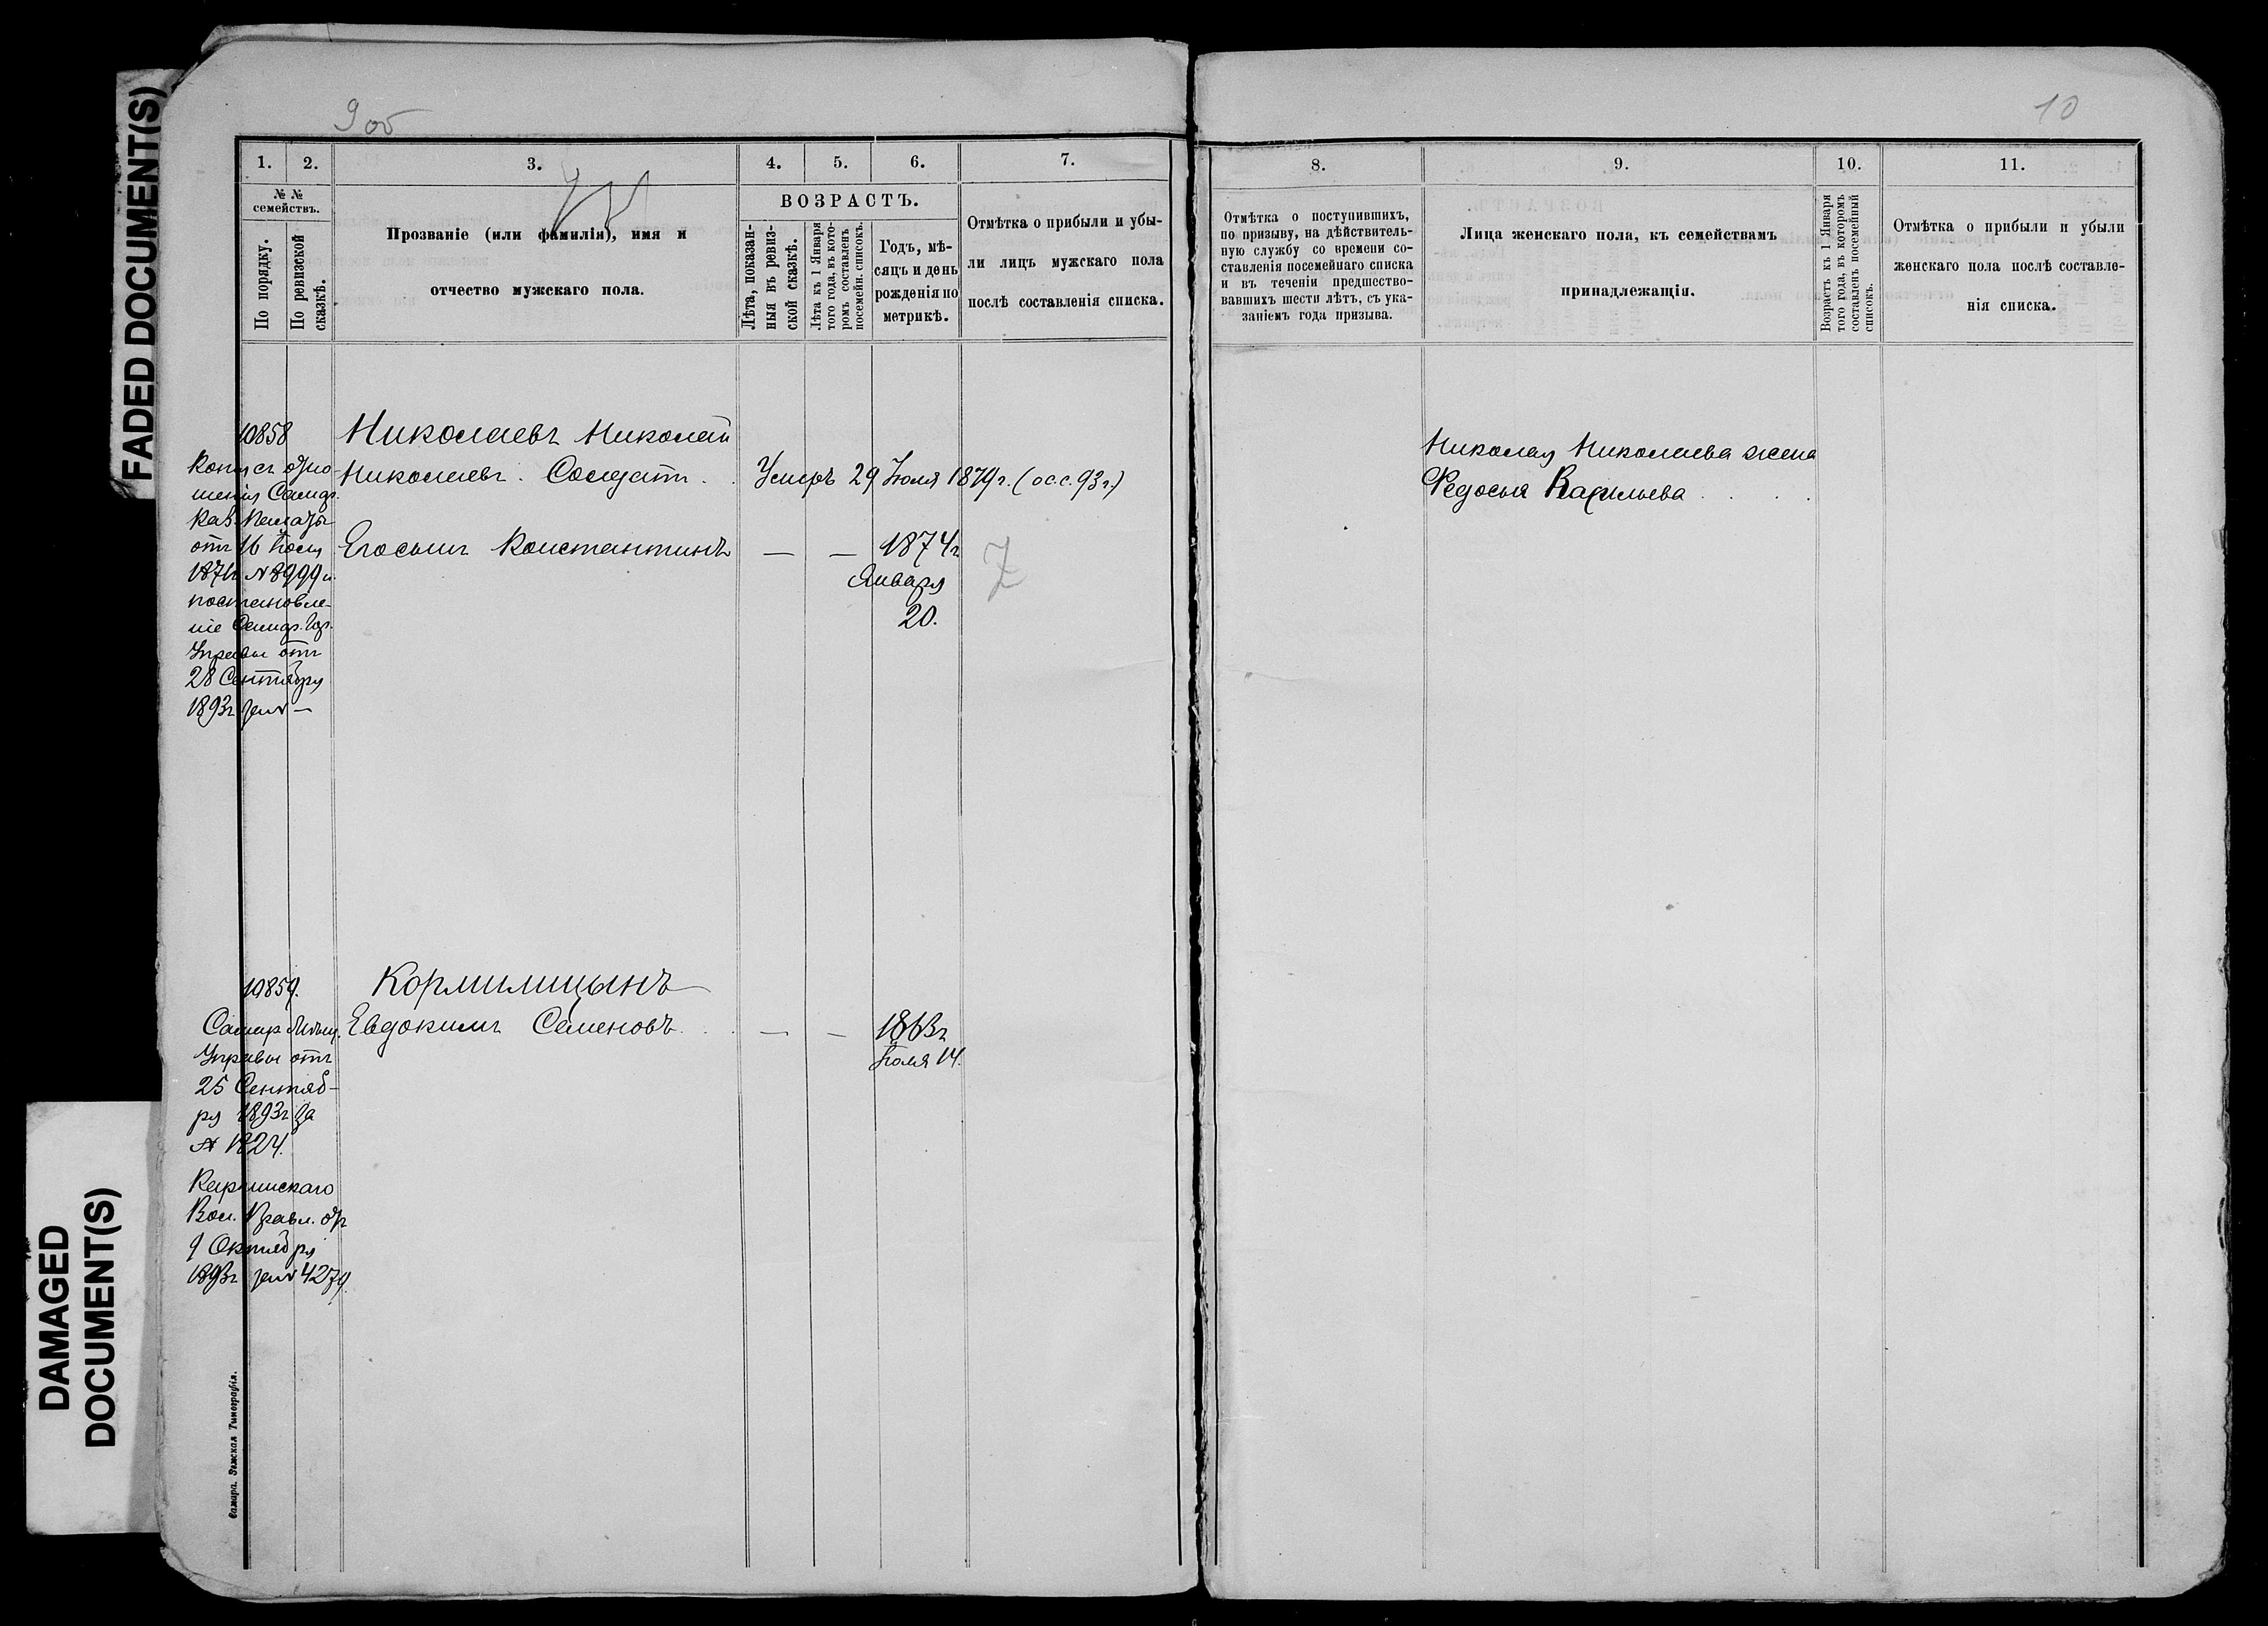 FADED DOCUMENT(S)
DAMAGED
DOCUMENT(S)
9 об
1.
2.
3.
4.
5.
6.
7.
№ №
семействъ.
По порядку.
По ревизской
сказкѣ.
Прозваніе (или фамилія), имя и
отчество мужскаго пола.
ВОЗРАСТЪ.
Лѣта, показан-
ныя въ ревиз-
ской сказкѣ.
Лѣта къ 1 Января
того года, въ кото-
ромъ составленъ
посемейн. списокъ.
Годъ, мѣ-
сяцъ и день
рожденія по
метрикѣ.
Отмѣтка о прибыли и убы-
ли лицъ мужскаго пола
послѣ составленія списка.
10858
Копія съ отно-
шенія Самар.
Каз. Палаты
отъ 16 Іюля
1871г №8999 и
постановле-
ніе Самар. Гор.
Управы отъ
28 Сентября
1893г за № —
Николаевъ Николай
Николаевъ. Солдатъ. Умеръ 29 Іюля 1879г. (ос.с. 93г.)
Его сынъ Константинъ — — 1874г
Января
20.
10859.
Кормилицынъ
Евдокимъ Семеновъ. — — 1863г
Іюля 14.
Самар. Мѣщ.
Управы отъ
25 Сентяб-
ря 1893г за
№ 1824.
Вол. Правл. от
9 Октября
1893г за № 4279.
Самара. Земская Типографія.
10
8.
9.
10.
11.
Отмѣтка о поступившихъ,
по призыву, на дѣйствитель-
ную службу со времени со-
ставленія посемейнаго списка
и въ теченіи предшество-
вавшихъ шести лѣтъ, съ ука-
заніемъ года призыва.
Лица женскаго пола, къ семействамъ
принадлежащія.
Возрастъ къ 1 Января
того года, въ которомъ
составленъ посемейный
списокъ.
Отмѣтка о прибыли и убыли
женскаго пола послѣ составле-
нія списка.
Николая Николаева жена
Федосья Васильева